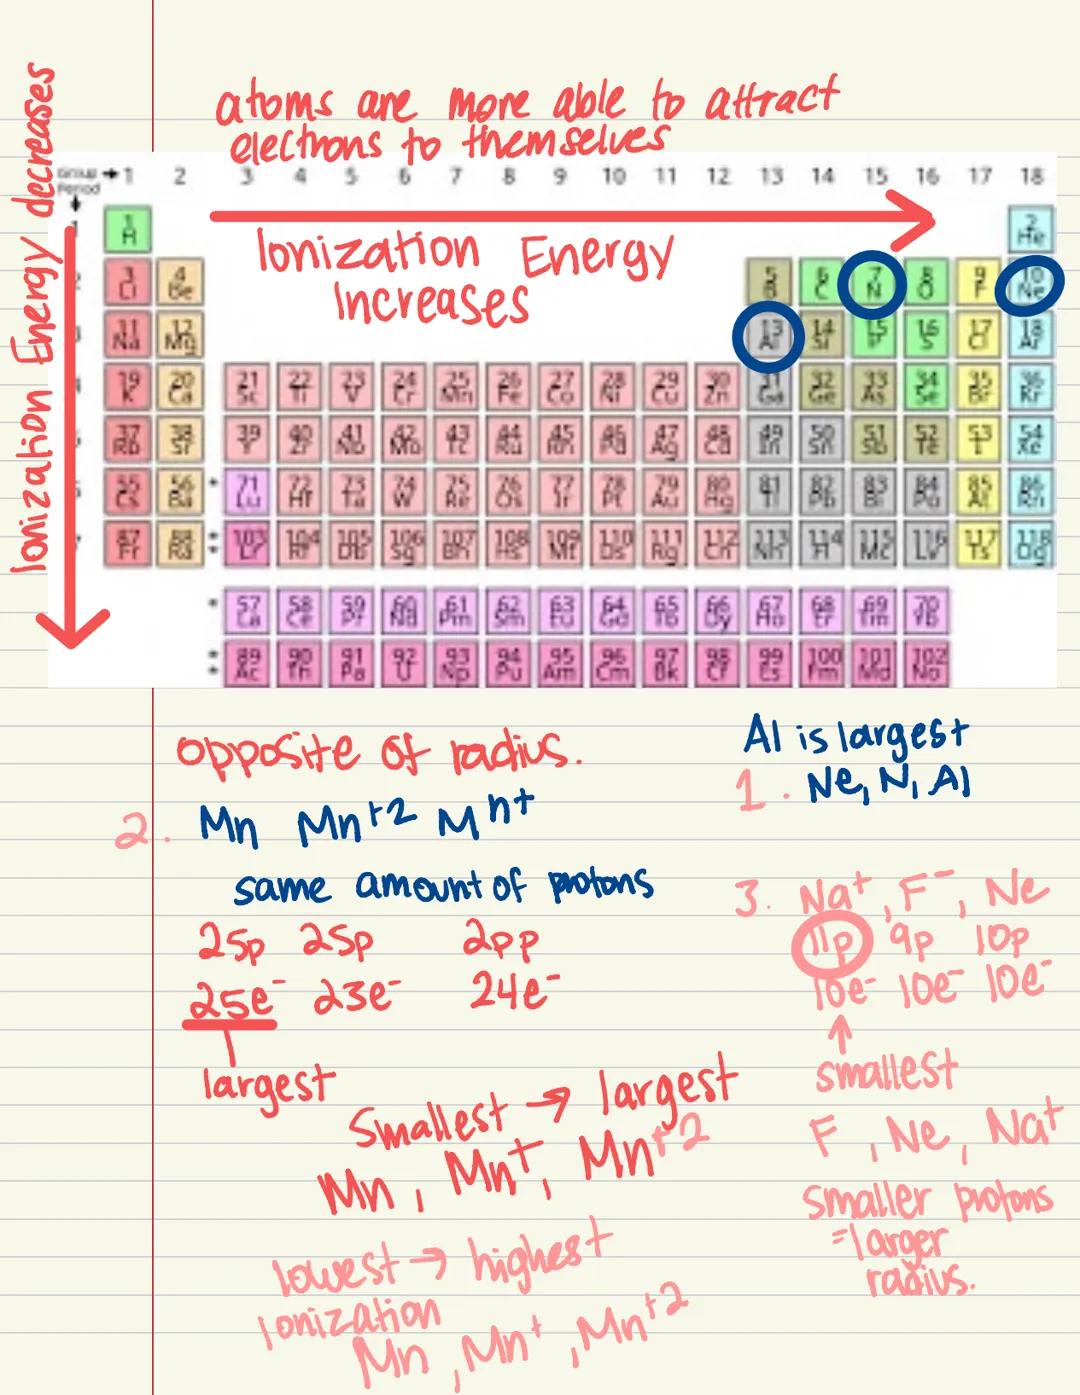 atoms are more able to attract
electrons to themselves
Ionization Energy decreases
Group → 1 2 3 4 5 6 7 8 9 10 11 12 13 14 15 16 17 18
Period
Ionization Energy
Increases
1 H 2 He
3 Li 4 Be 5 B 6 C 7 N 8 O 9 F 10 Ne
11 Na 12 Mg 13 Al 14 Si 15 P 16 S 17 Cl 18 Ar
19 K 20 Ca 21 Sc 22 Ti 23 V 24 Cr 25 Mn 26 Fe 27 Co 28 Ni 29 Cu 30 Zn 31 Ga 32 Ge 33 As 34 Se 35 Br 36 Kr
37 Rb 38 Sr 39 Y 40 Zr 41 Nb 42 Mo 43 Tc 44 Ru 45 Rh 46 Pd 47 Ag 48 Cd 49 In 50 Sn 51 Sb 52 Te 53 I 54 Xe
55 Cs 56 Ba * 71 Lu 72 Hf 73 Ta 74 W 75 Re 76 Os 77 Ir 78 Pt 79 Au 80 Hg 81 Tl 82 Pb 83 Bi 84 Po 85 At 86 Rn
87 Fr 88 Ra ** 103 Lr 104 Rf 105 Db 106 Sg 107 Bh 108 Hs 109 Mt 110 Ds 111 Rg 112 Cn 113 Nh 114 Fl 115 Mc 116 Lv 117 Ts 118 Og
* 57 La 58 Ce 59 Pr 60 Nd 61 Pm 62 Sm 63 Eu 64 Gd 65 Tb 66 Dy 67 Ho 68 Er 69 Tm 70 Yb
** 89 Ac 90 Th 91 Pa 92 U 93 Np 94 Pu 95 Am 96 Cm 97 Bk 98 Cf 99 Es 100 Fm 101 Md 102 No
opposite of radius.
Al is largest
1. Ne, N, Al
2. Mn Mn+2 Mn+
same amount of protons
25p 25p 2pp
25e- 23e- 24e-
largest
Smallest → largest
Mn, Mn+, Mn+2
lowest → highest
Ionization
Mn, Mn+, Mn+2
3. Na+, F-, Ne
11p 9p 10p
10e- 10e- 10e-
smallest
F, Ne, Na+
smaller protons
=larger
radius.